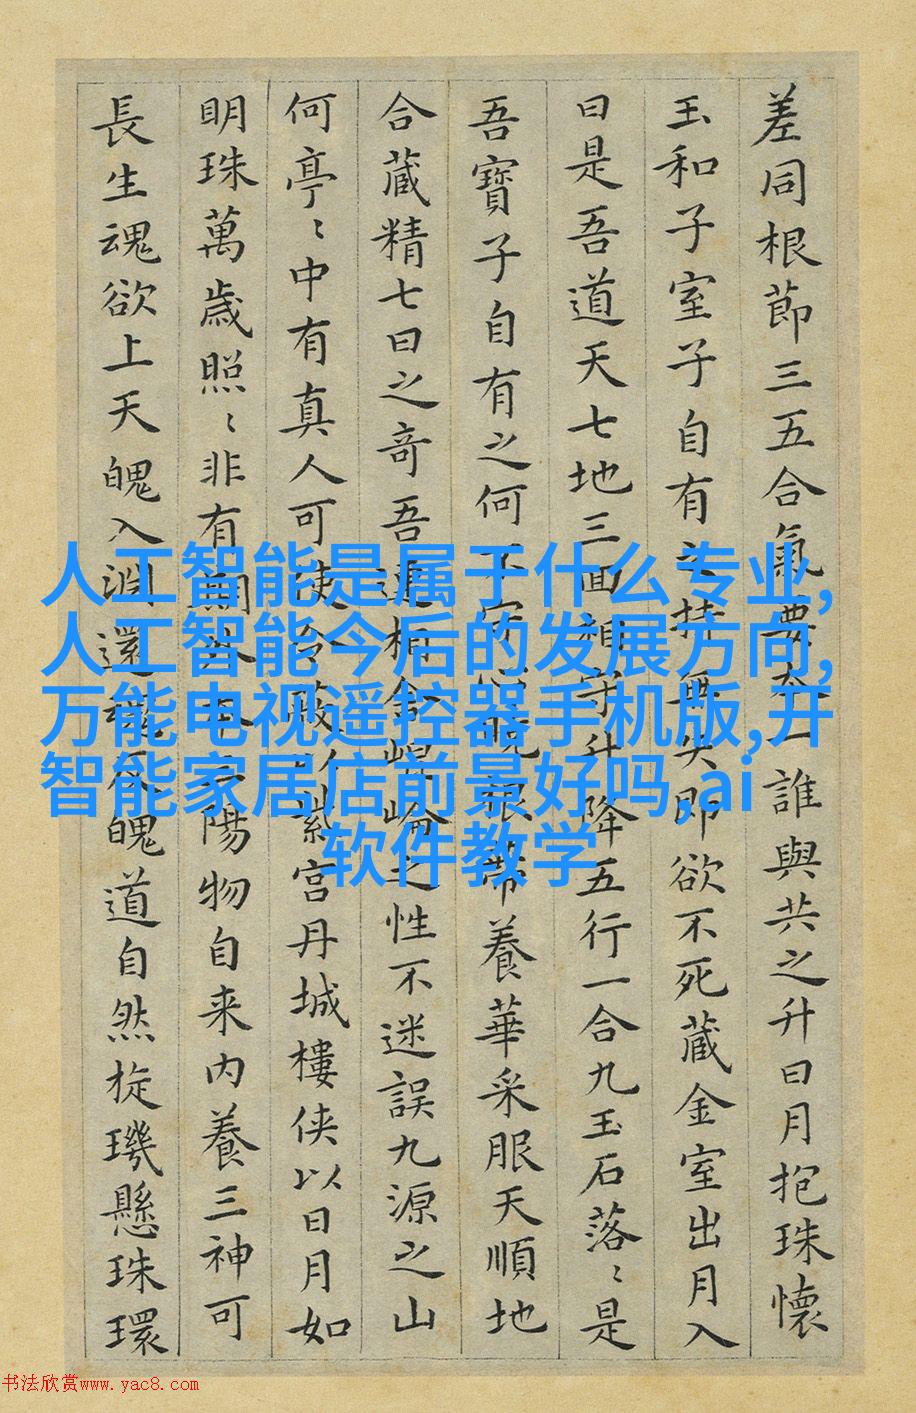 差同根節三五合氣要本一誰與共之升日月抱珠懷
玉和子室子自有之持無失即欲不死藏金室出月入
日是吾道天七地三回相守升降五行一合九玉石落〻是
吾寶子自有之何不守心曉根蒂養華采服天順地
合藏精七日之奇吾連相舍崐崘之性不迷誤九源之山
何亭〻中有真人可使令蔽以紫宮丹城樓俠以日月如
明珠萬歲照〻非有期外本三陽物自来内養三神可
長生魂欲上天魄入淵還魂返魄道自然旋璣懸珠環
人工智能是属于什么专业,
人工智能今后的发展方向,
万能电视遥控器手机版,开
智能家居店前景好吗,ai
软件教学
书法欣赏www.yac8.com